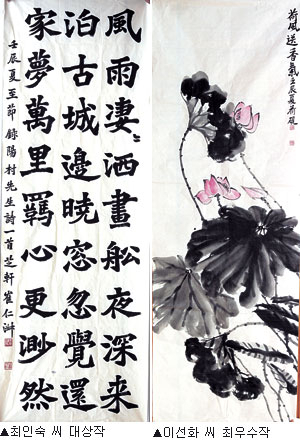 風雨凄〻洒畫舩夜深来
泊古城邊暁窓忽覺還
家夢萬里羈心更渺然
壬辰夏至節錄陽村先生詩一首芝軒崔仁淑
荷風送香氣壬辰夏荷
▲최인숙 씨 대상작
▲이선화 씨 최우수작